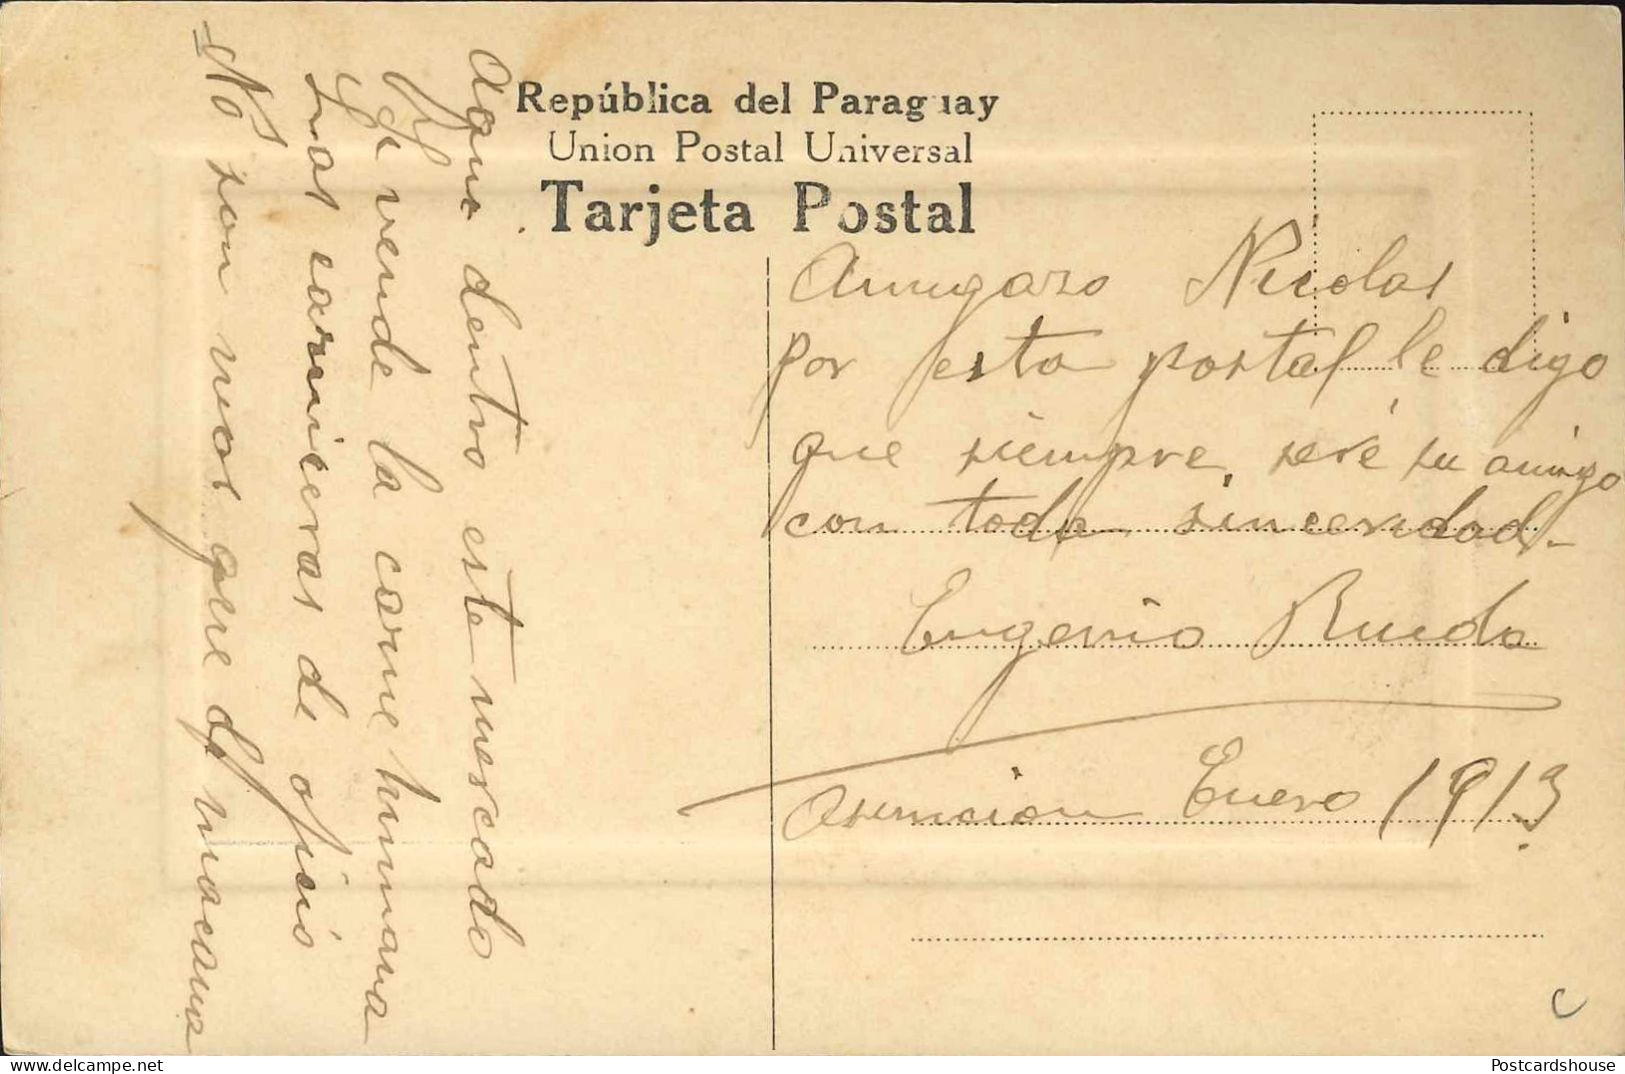 República del Paraguay
Union Postal Universal
Tarjeta Postal
Aqui dentro este mercado
Se vende la carne humana
Las carniceras de oficio
No son mas que de macana
Amigazo Nicolas
por esta postal le digo
que siempre seré su amigo
con toda sinceridad.
Eugenio Rueda
Asuncion Enero 1913.
C
Postcardshouse